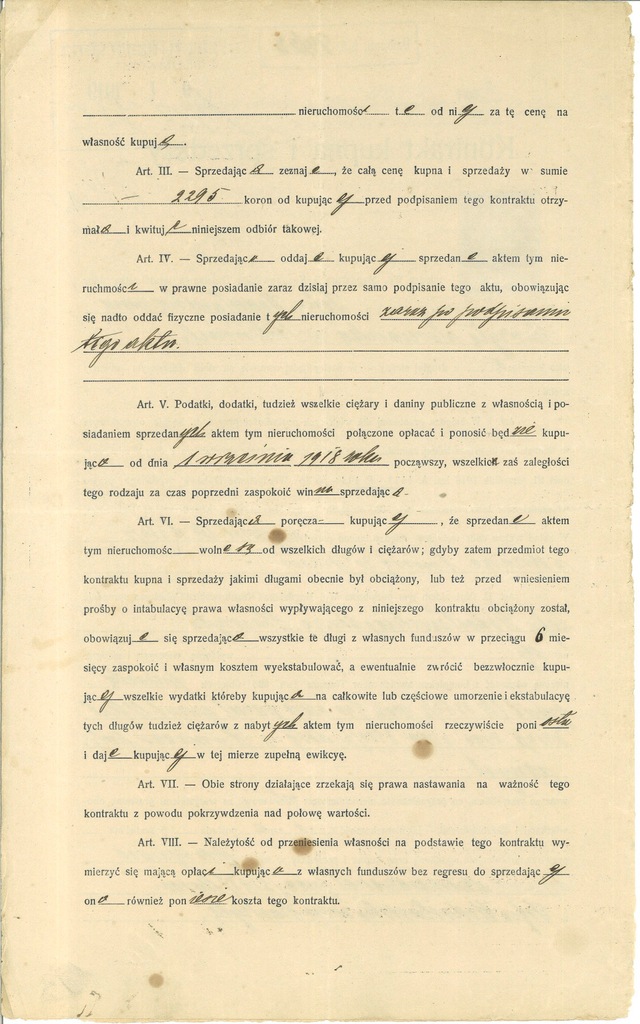 nieruchomości te od niej za tę cenę na
własność kupuje.
Art. III. — Sprzedająca zeznaje, że całą cenę kupna i sprzedaży w sumie
— 2295 koron od kupującej przed podpisaniem tego kontraktu otrzy-
mała i kwituje niniejszem odbiór takowej.
Art. IV. — Sprzedająca oddaje kupującej sprzedane aktem tym nie-
ruchmości w prawne posiadanie zaraz dzisiaj przez samo podpisanie tego aktu, obowiązując
się nadto oddać fizyczne posiadanie tych nieruchomości zaraz po podpisaniu
tego aktu.
Art. V. Podatki, dodatki, tudzież wszelkie ciężary i daniny publiczne z własnością i po-
siadaniem sprzedanych aktem tym nieruchomości połączone opłacać i ponosić będzie kupu-
jąca od dnia 1 września 1918 roku począwszy, wszelkich zaś zaległości
tego rodzaju za czas poprzedni zaspokoić winna sprzedająca
Art. VI. — Sprzedająca poręcza kupującej, że sprzedane aktem
tym nieruchomośc wolne są od wszelkich długów i ciężarów; gdyby zatem przedmiot tego
kontraktu kupna i sprzedaży jakimi długami obecnie był obciążony, lub też przed wniesieniem
prośby o intabulacyę prawa własności wypływającego z niniejszego kontraktu obciążony został,
obowiązuje się sprzedająca wszystkie te długi z własnych funduszów w przeciągu 6 mie-
sięcy zaspokoić i własnym kosztem wyekstabulować, a ewentualnie zwrócić bezzwłocznie kupu-
jącej wszelkie wydatki któreby kupująca na całkowite lub częściowe umorzenie i ekstabulacyę
tych długów tudzież ciężarów z nabytych aktem tym nieruchomości rzeczywiście poniosła
i daje kupującej w tej mierze zupełną ewikcyę.
Art. VII. — Obie strony działające zrzekają się prawa nastawania na ważność tego
kontraktu z powodu pokrzywdzenia nad połowę wartości.
Art. VIII. — Należytość od przeniesienia własności na podstawie tego kontraktu wy-
mierzyć się mającą opłaci kupująca z własnych funduszów bez regresu do sprzedającej
ona również poniesie koszta tego kontraktu.